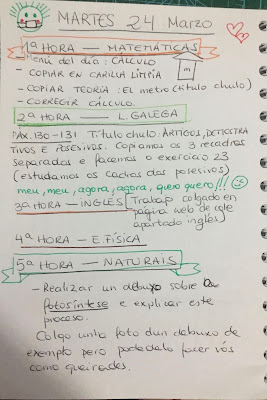 MARTES 24 Marzo
1ª HORA — MATEMÁTICAS
Menú del día: CÁLCULO
- COPIAR EN CARILLA LIMPIA
- COPIAR TEORÍA: El metro (título chulo)
- CORREGIR CÁLCULO.
m
2ª HORA — L. GALEGA
PÁX. 130-131 Título chulo: ARTIGOS, DEMOSTRA
TIVOS E POSESIVOS. Copiamos os 3 recadros
separados e facemos o exercicio 23
(estudamos os cachos dos posesivos)
meu, meu, agora, agora, quero quero!!!
3ª HORA — INGLÉS (Traballo colgado en
páxina web do cole
apartado inglés)
4ª HORA — E. FÍSICA
5ª HORA — NATURAIS
- Realizar un debuxo sobre la
fotosíntese e explicar este
proceso.
Colgo unha foto dun debuxo de
exemplo pero podedelo facer vós
como queirades.